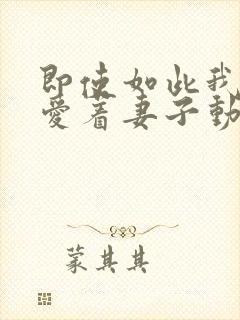 即使如此我
爱着妻子動
蒙其其